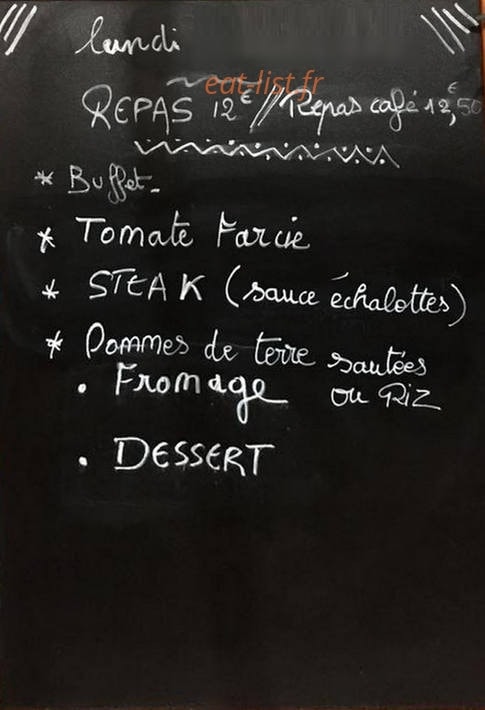 lundi
eat-list.fr
REPAS 12€ // Repas café 12,50€
* Buffet-
* Tomate Farcie
* STEAK (sauce échalottes)
* Pommes de terre sautées
ou RiZ
. Fromage
. DESSERT